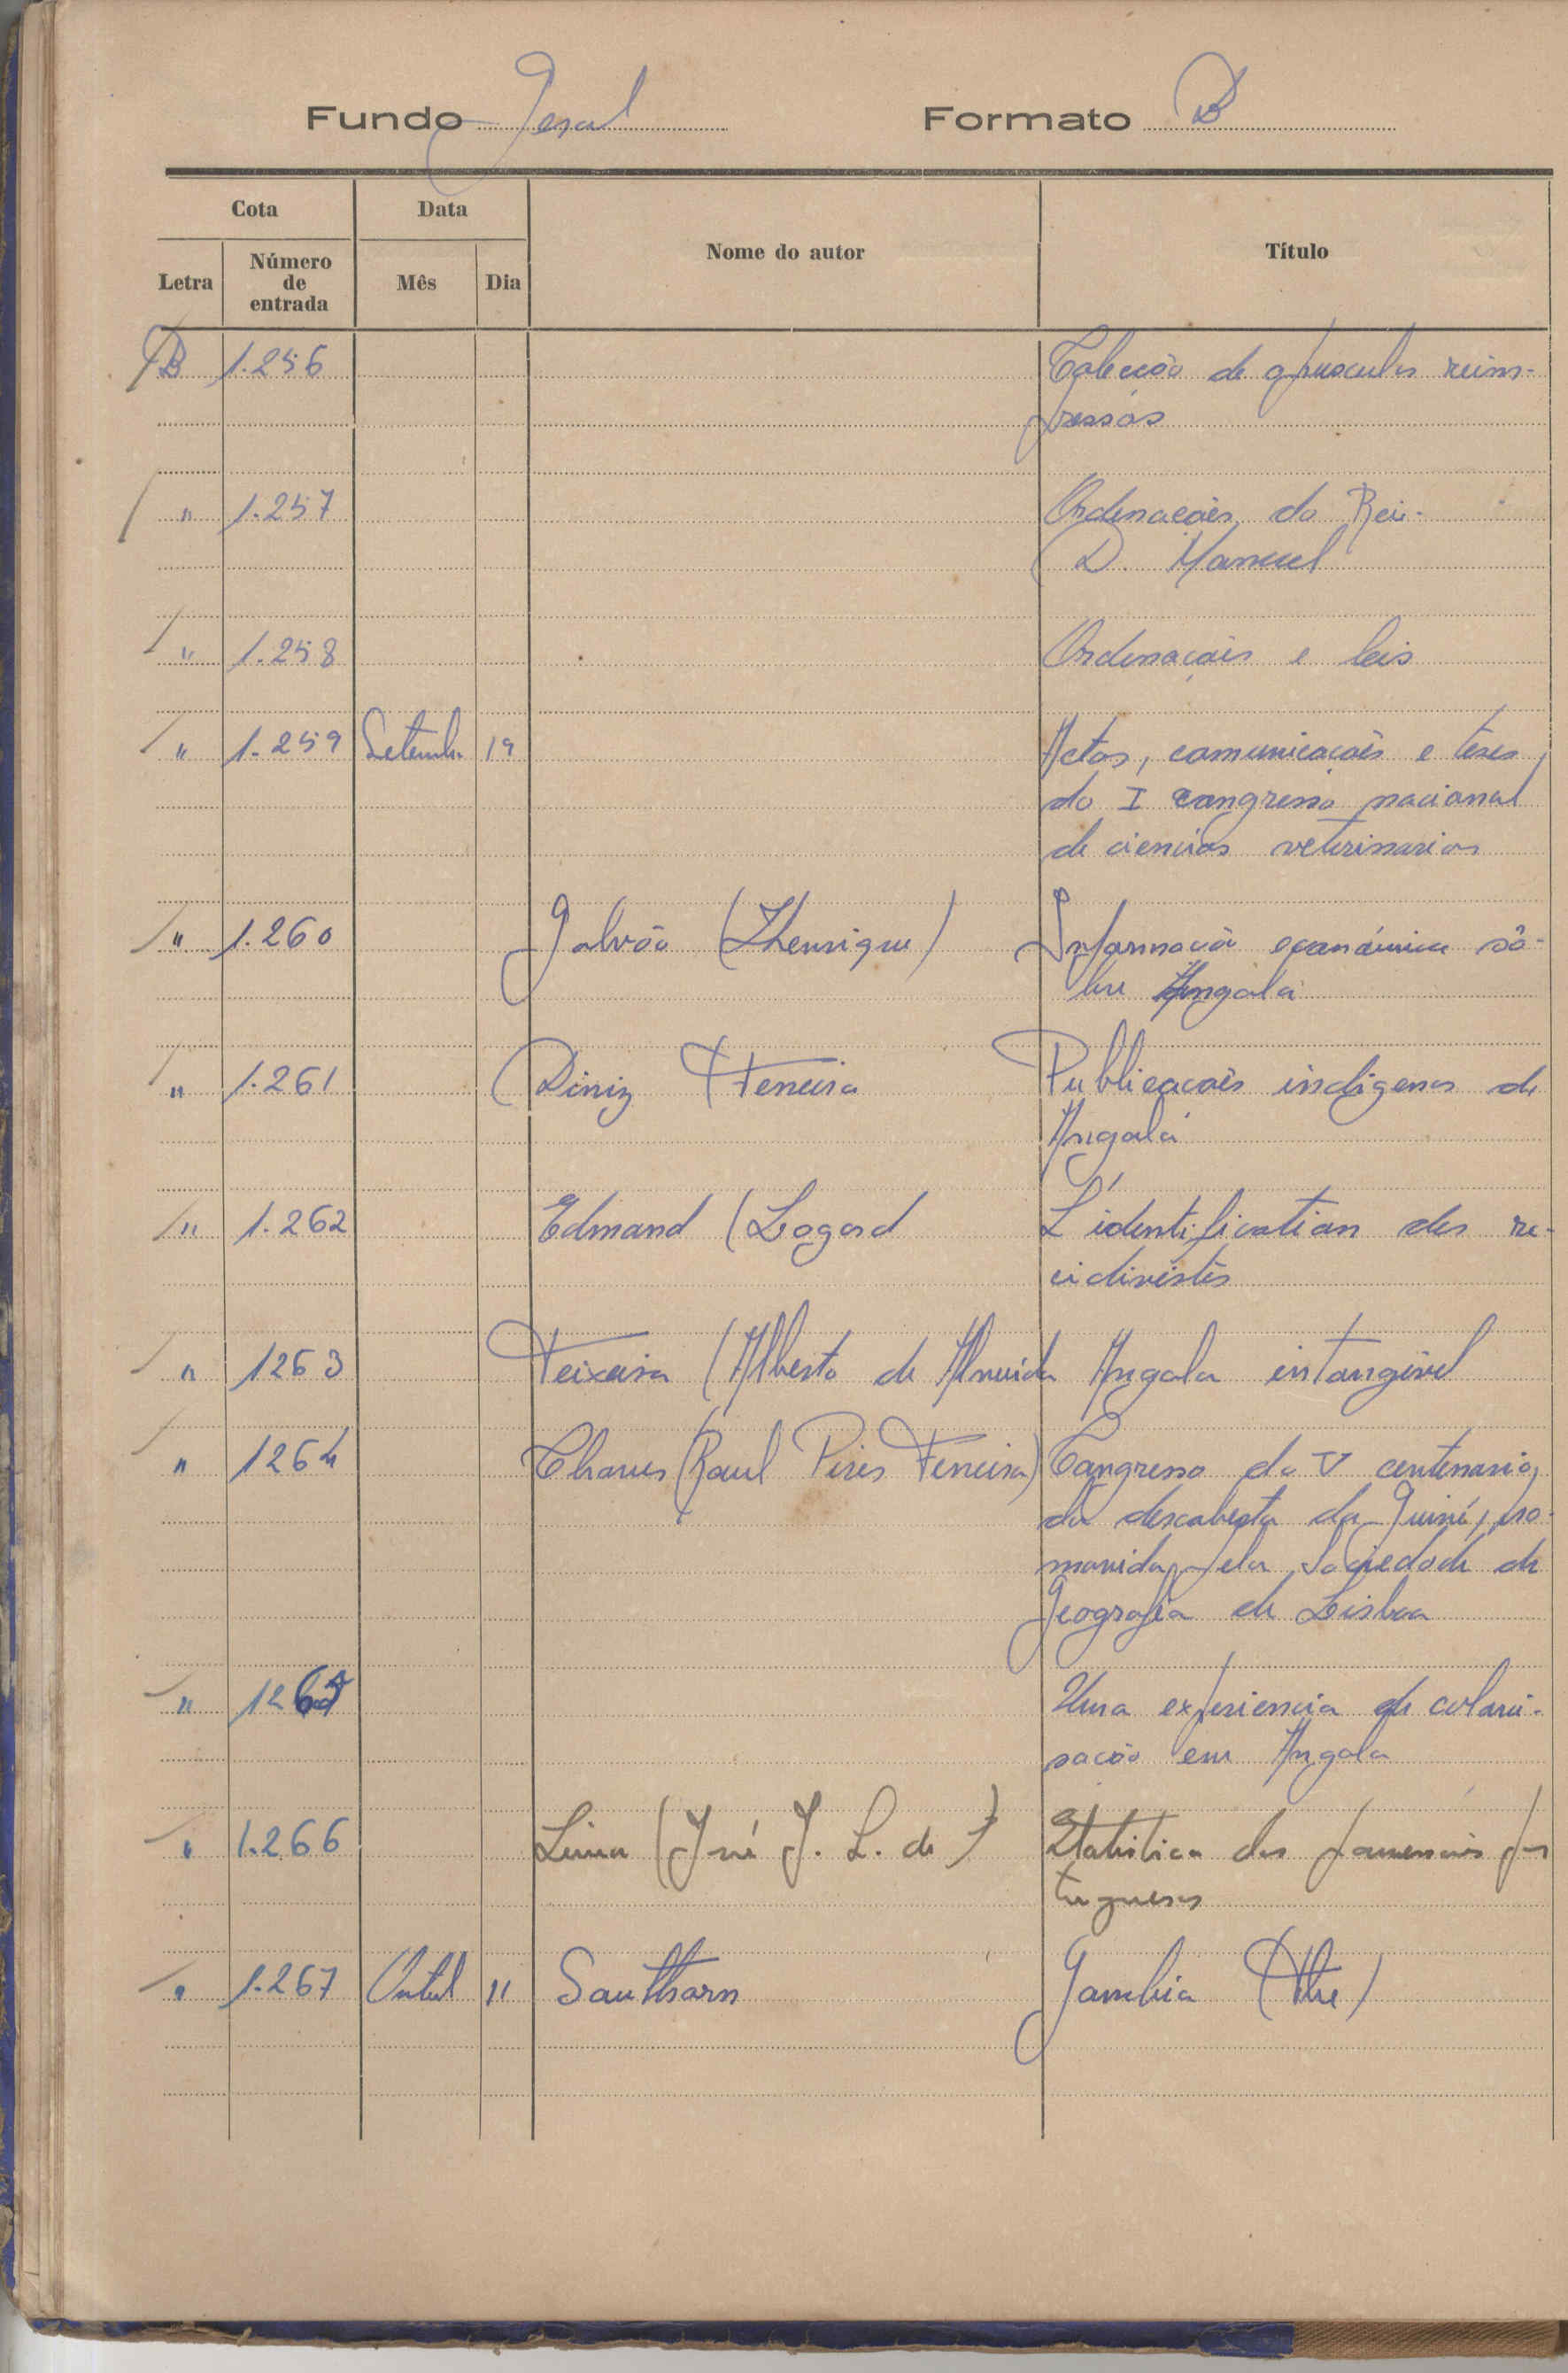 Fundo Geral Formato B
Cota Data Nome do autor Título
Letra Número de entrada Mês Dia
B 1.256 Colecção de opusculos reim-
pressos
" 1.257 Ordenações do Rei
D. Manuel
" 1.258 Ordenações e leis
" 1.259 Setembro 19 Actos, comunicações e teses
do I congresso nacional
de ciencias veterinarias
" 1.260 Galvão (Henrique) Informação económica sô-
bre Angola
" 1.261 Diniz (Ferreira Publicações indigenas de
Angola
" 1.262 Edmond (Logord L'identification des re-
cidivistes
" 1263 Teixeira (Alberto de Almeida Angola intangivel
" 1264 Chaves (Raul Pires Ferreira) Congresso do V centenario
da descoberta da Guiné, pro-
movida pela Sociedade de
Geografia de Lisboa
" 1265 Uma experiencia de coloni-
sação em Angola
" 1.266 Lima (José J. L. de) Statistica das possessões por
tuguesas
" 1.267 Outub 11 Southorn Gambia (The)